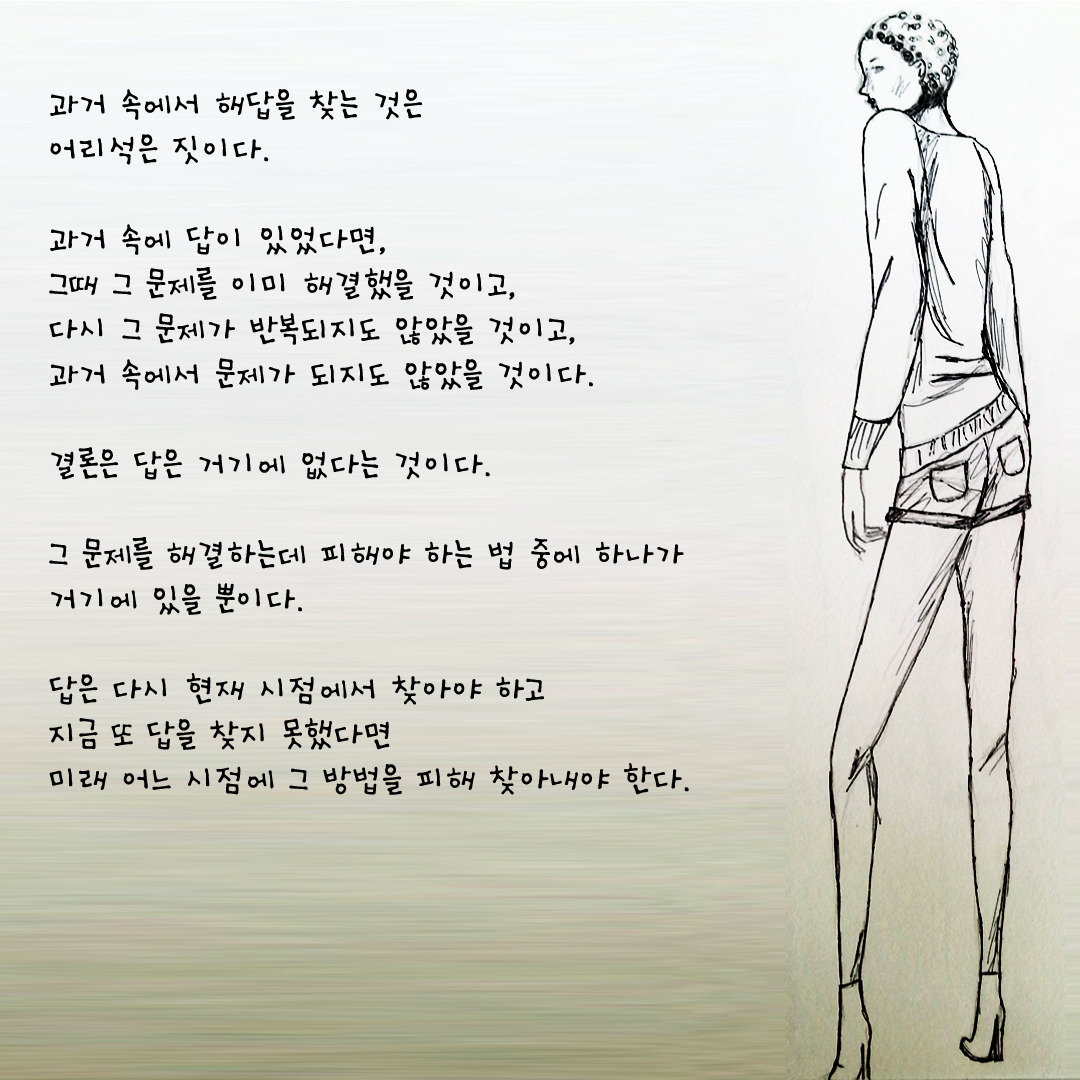 과거 속에서 해답을 찾는 것은
어리석은 짓이다.
과거 속에 답이 있었다면,
그때 그 문제를 이미 해결했을 것이고,
다시 그 문제가 반복되지도 않았을 것이고,
과거 속에서 문제가 되지도 않았을 것이다.
결론은 답은 거기에 없다는 것이다.
그 문제를 해결하는데 피해야 하는 법 중에 하나가
거기에 있을 뿐이다.
답은 다시 현재 시점에서 찾아야 하고
지금 또 답을 찾지 못했다면
미래 어느 시점에 그 방법을 피해 찾아내야 한다.